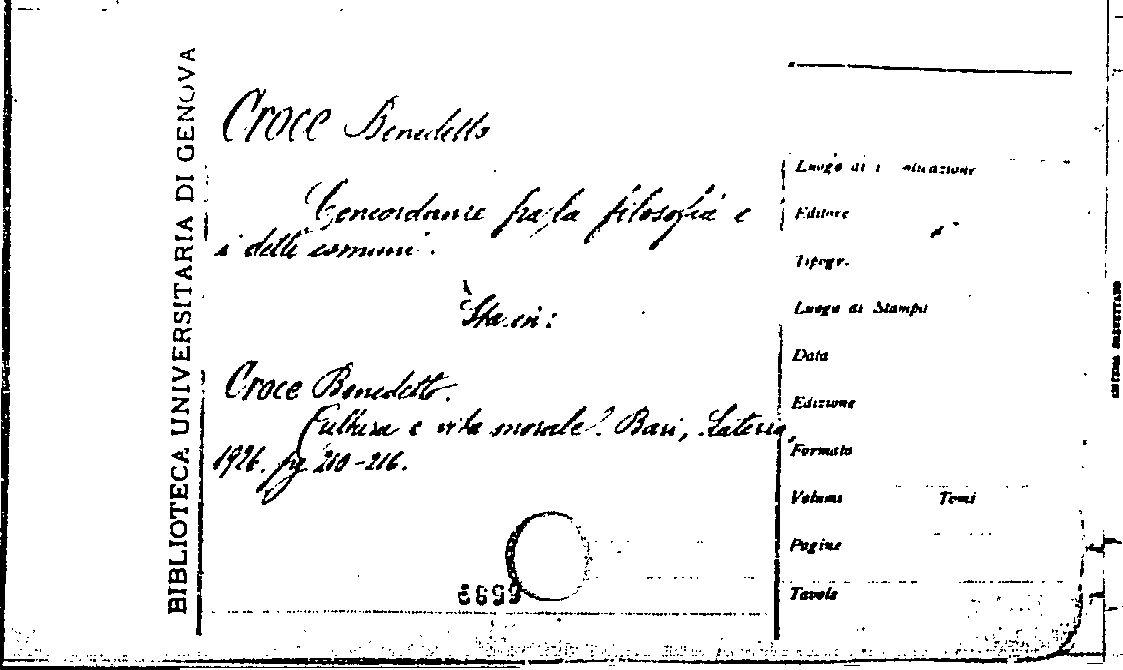 BIBLIOTECA UNIVERSITARIA DI GENOVA
Croce Benedetto
Concordanze fra la filosofia e
i detti comuni.
Sta in:
Croce Benedetto.
Cultura e vita morale². Bari, Laterza,
1926. pg 210-216.
Luogo di
Editore
Tipogr.
Luogo di Stampa
Data
Edizione
Formato
Volumi Tomi
Pagine
Tavole